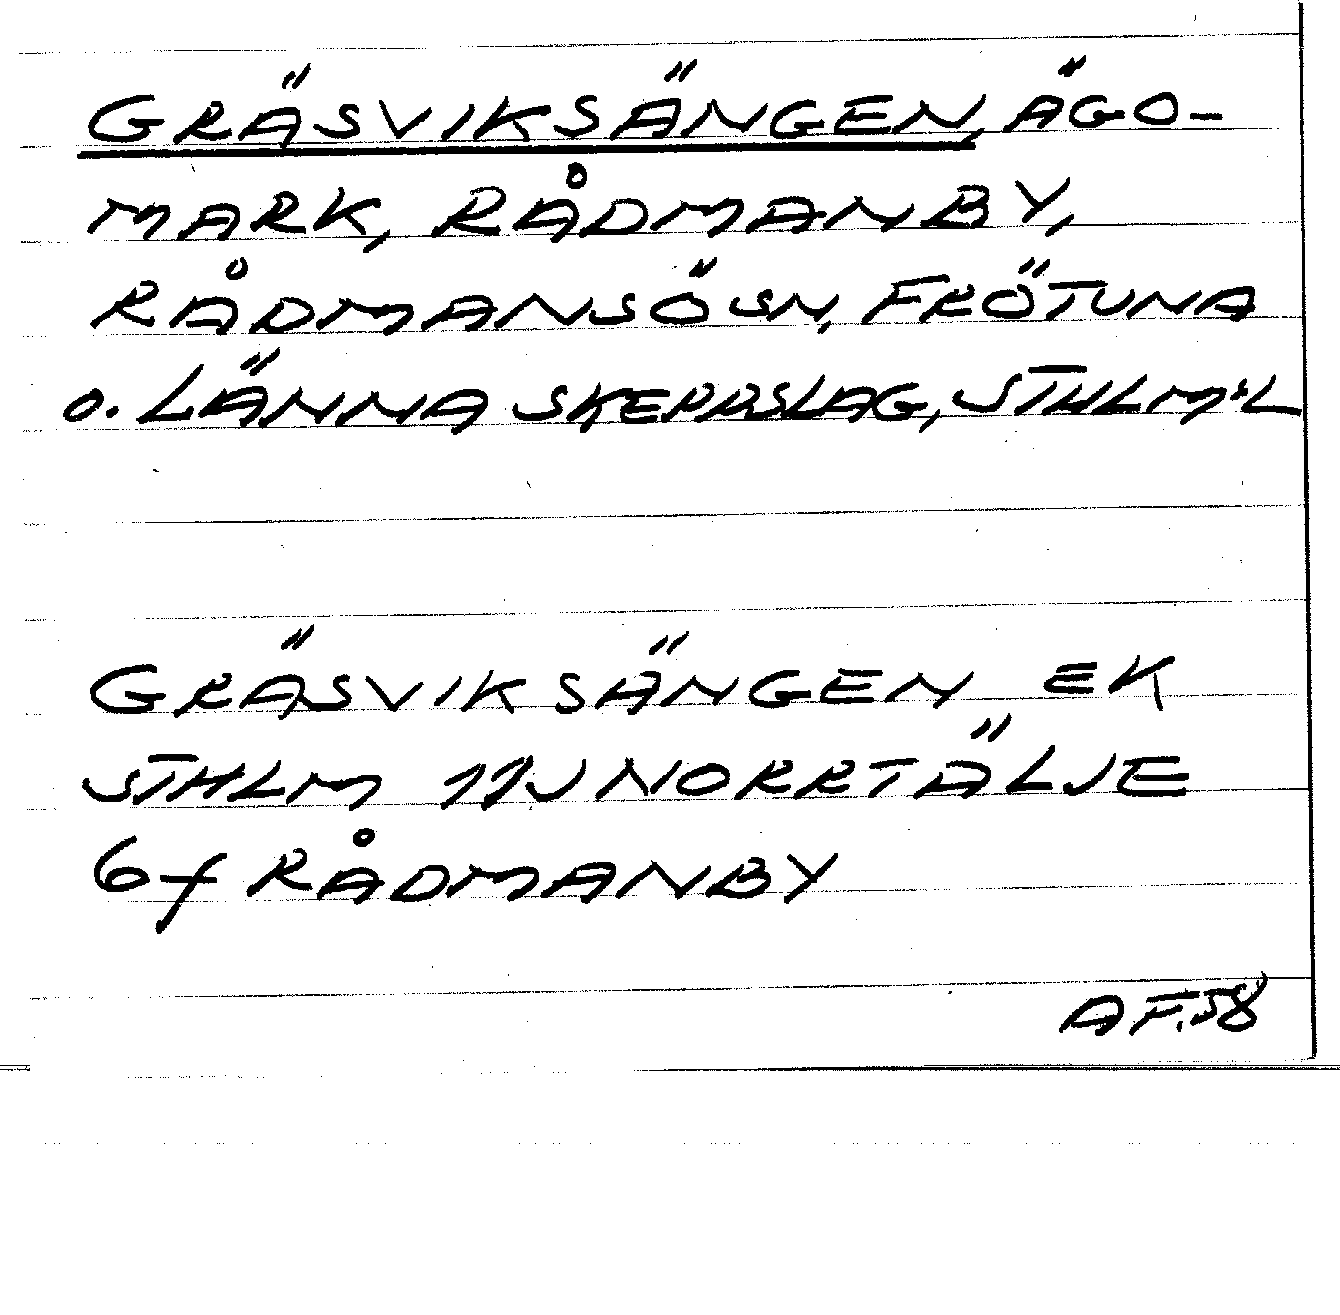 GRÄSVIKSÄNGEN, ÄGO-
MARK, RÅDMANBY,
RÅDMANSÖ SN, FRÖTUNA
O. LÄNNA SKEPPSLAG, STHLM:S L
GRÄSVIKSÄNGEN EK
STHLM 11J NORRTÄLJE
6f RÅDMANBY
AF.58